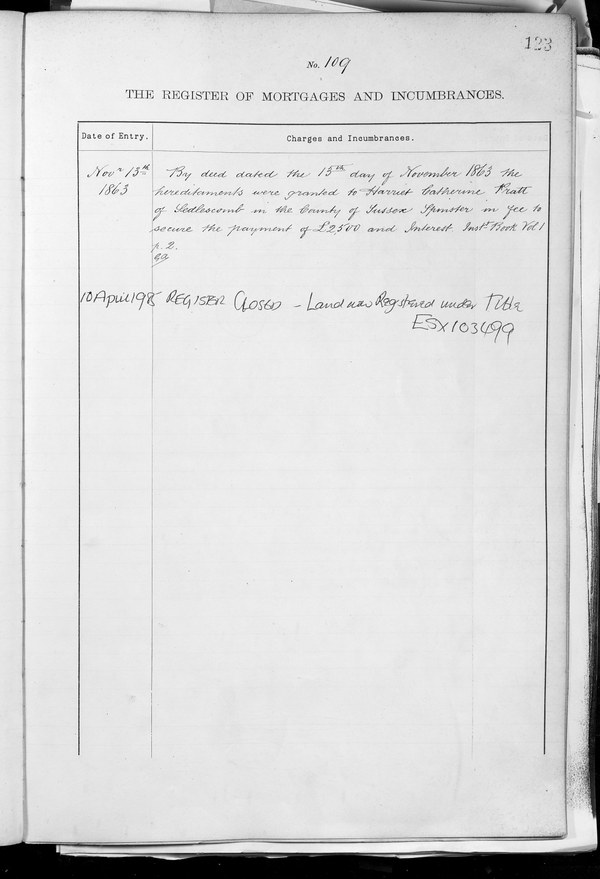 123
No. 109
THE REGISTER OF MORTGAGES AND INCUMBRANCES.
Date of Entry.
Charges and Incumbrances.
Novr 15th
1863
By deed dated the 15th day of November 1863 the
hereditaments were granted to Harriet Catherine Pratt
of Sedlescomb in the County of Sussex Spinster in fee to
secure the payment of £2500 and Interest Instt Book Vol 1
p. 2.
10 April 1985 REGISTER CLOSED - Land now Registered under Title
ESX103499